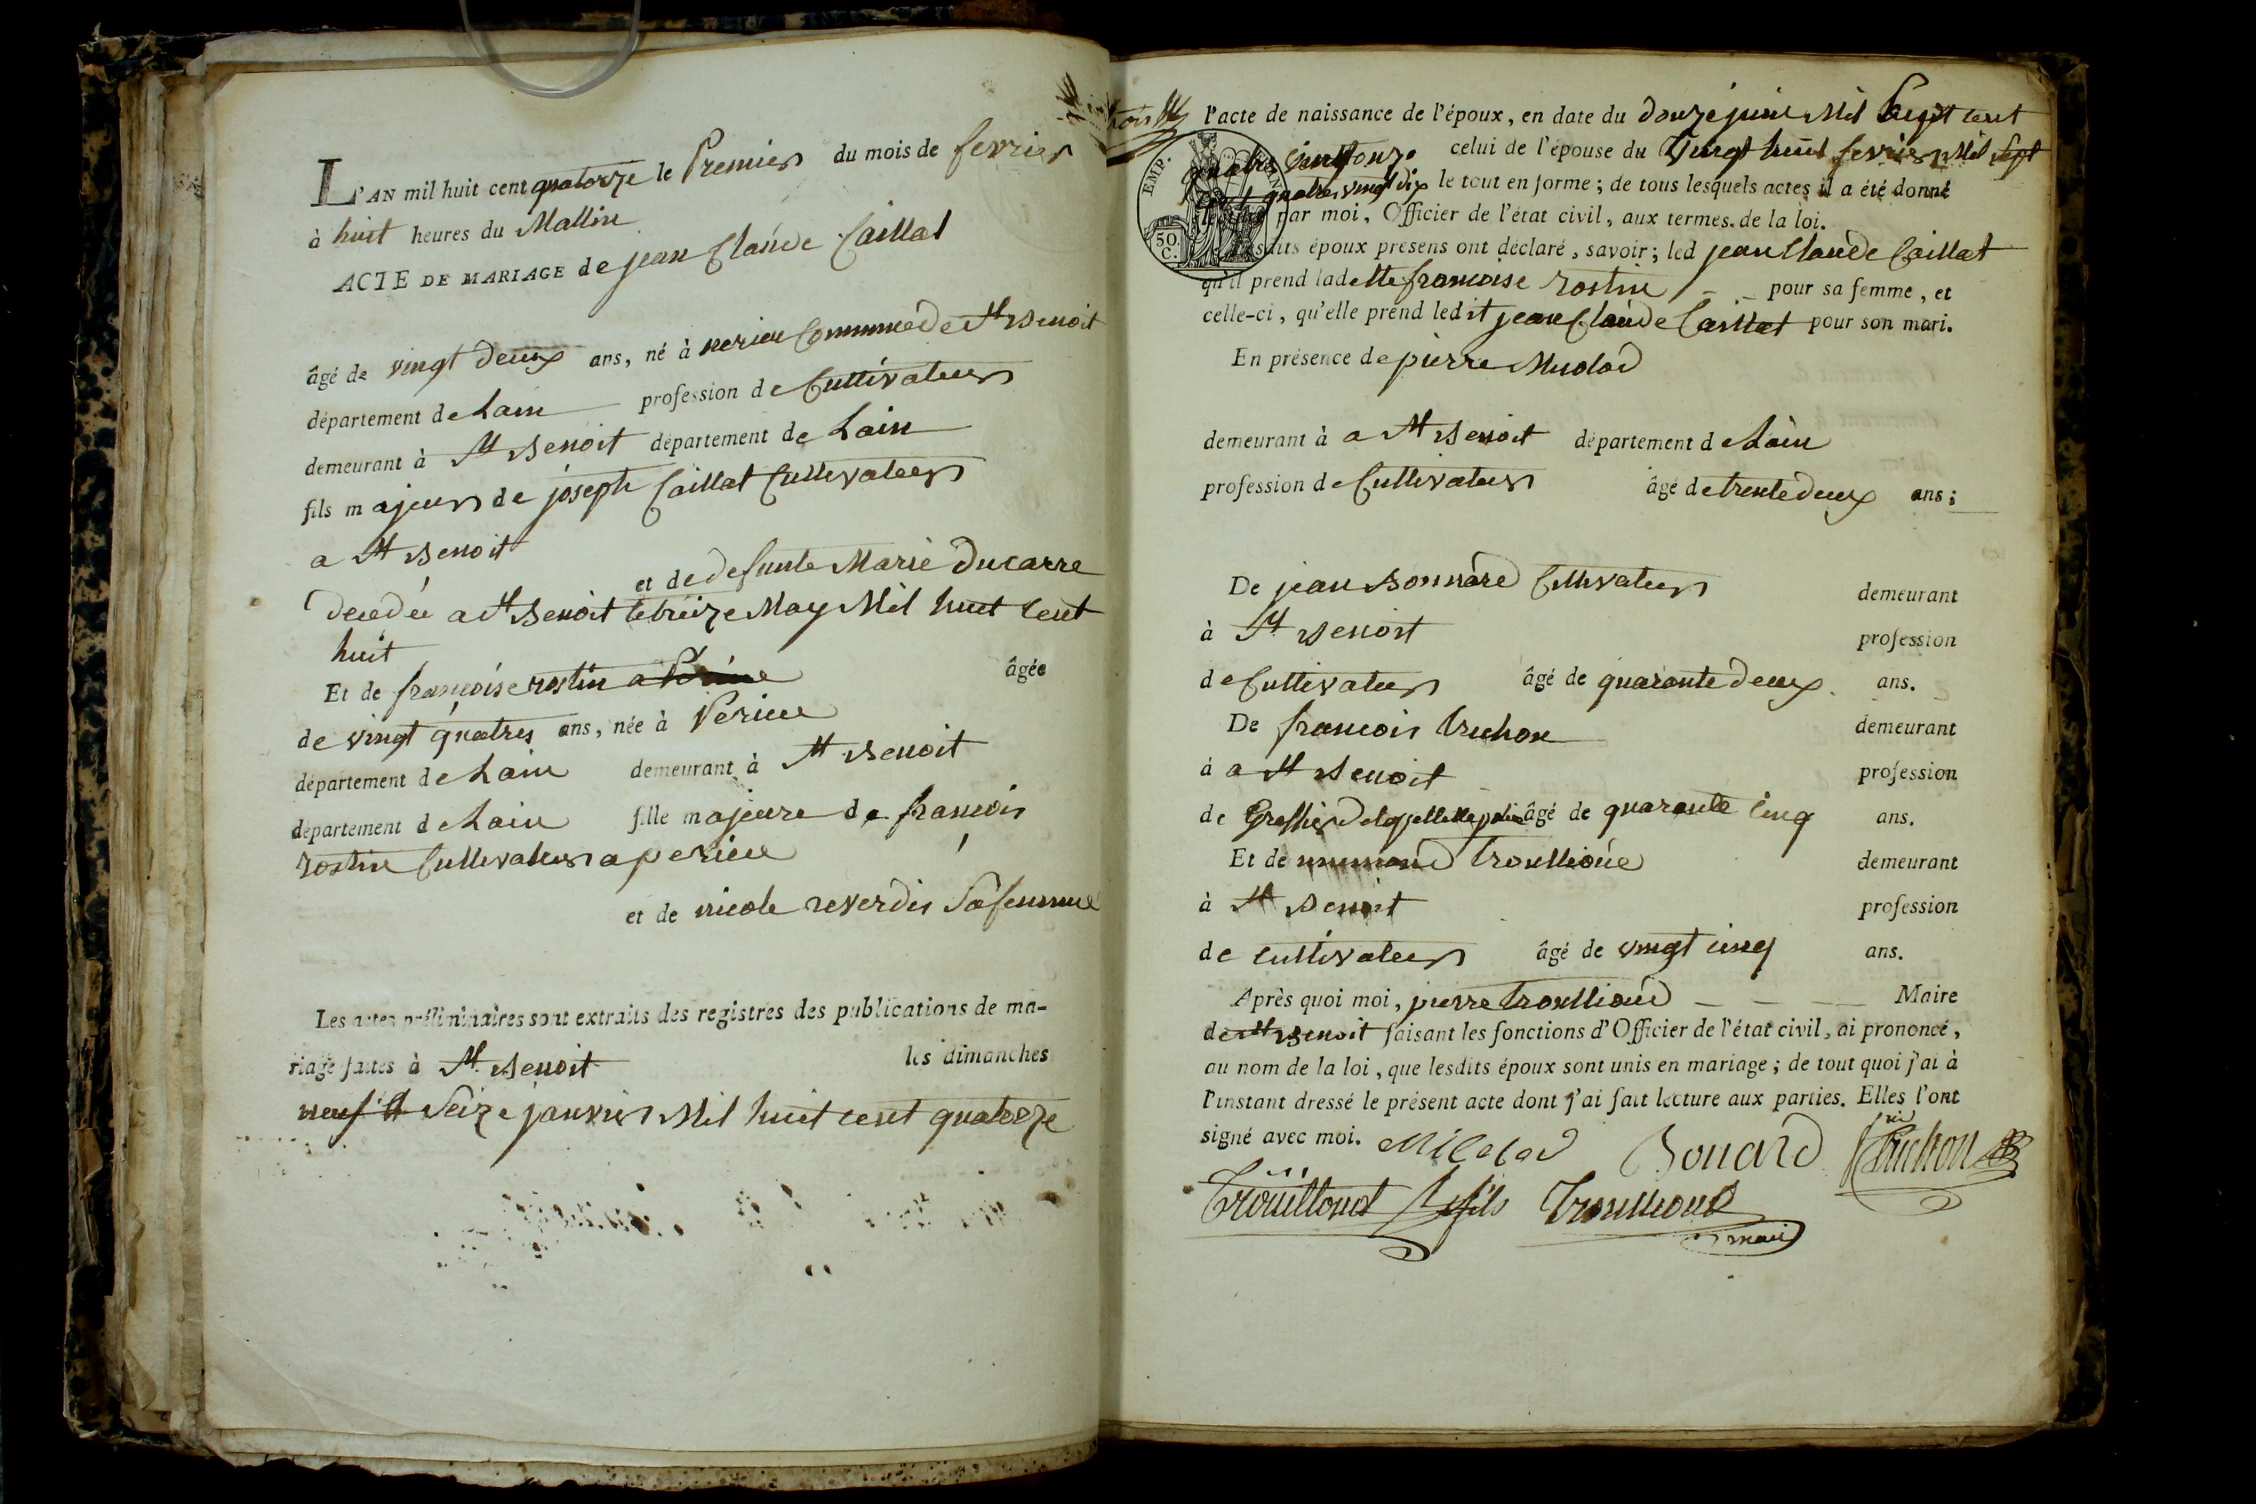 L'AN mil huit cent quatorze le Premier du mois de fevrier
à huit heures du Mattin
ACTE DE MARIAGE de jean Claude Caillat
âgé de vingt deux ans, né à verieu Commune de St Benoit
département de Lain profession de Cultivateur
demeurant à St Benoit département de Lain
fils majeur de joseph Caillat Cultivateur
a St Benoit
et de defunte Marie Ducarre
decedée a St Benoit le treize May Mil huit cent
huit
Et de françoise rostin a âgée
de vingt quatres ans, née à Perieu
département de Lain demeurant à St Benoit
département de Lain fille majeure de francois
rostin Cultivateur a perieu
et de nicole reverdis Sa femme
Les actes préliminaires sont extraits des registres des publications de ma-
riage faites à St Benoit les dimanches
neuf et Seize janvier Mil huit cent quatorze
l'acte de naissance de l'époux, en date du douze juin Mil Sept cent
quatre vingt onze celui de l'épouse du Vingt huit fevrier Mil Sept
cent quatre vingt dix le tout en forme; de tous lesquels actes il a été donné
lecture par moi, Officier de l'état civil, aux termes de la loi.
EMP.
50
C.
Lesdits époux présens ont déclaré, savoir; led jean Claude Caillat
qu'il prend ladette francoise rostin pour sa femme, et
celle-ci, qu'elle prend ledit jean Claude Caillat pour son mari.
En présence de pierre Milolod
demeurant à a St Benoit département de Lain
profession de Cultivateur âgé de trente deux ans;
De jean Bonnard Cultivateur demeurant
à St Benoit profession
de Cultivateur âgé de quarante deux ans.
De francois truchon demeurant
à a St Benoit profession
de Greffier âgé de quarante cinq ans.
Et de trouillioud demeurant
à St Benoit profession
de cultivateur âgé de vingt cinq ans.
Après quoi moi, pierre trouillioud Maire
de St Benoit faisant les fonctions d'Officier de l'état civil, ai prononcé,
au nom de la loi, que lesdits époux sont unis en mariage; de tout quoi j'ai à
l'instant dressé le présent acte dont j'ai fait lecture aux parties. Elles l'ont
signé avec moi. Milolod Bonard truchon
Trouilloud fils Trouillioud
maire